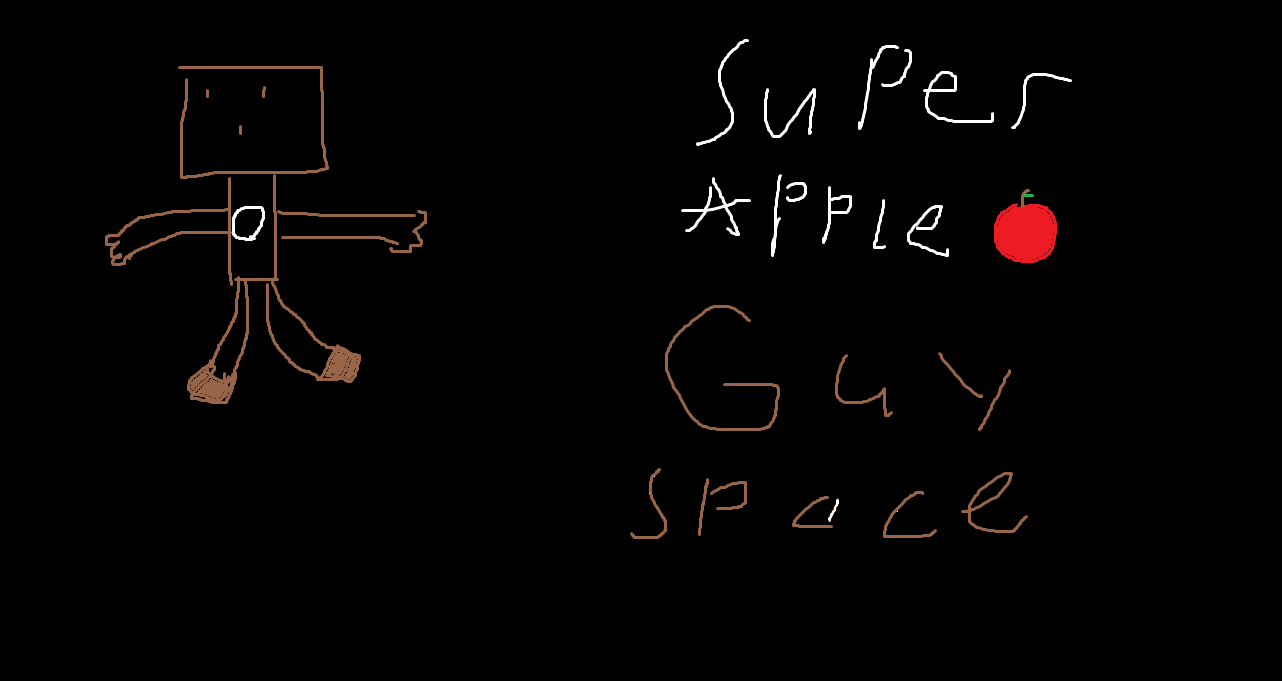 Super
Apple
Guy
space